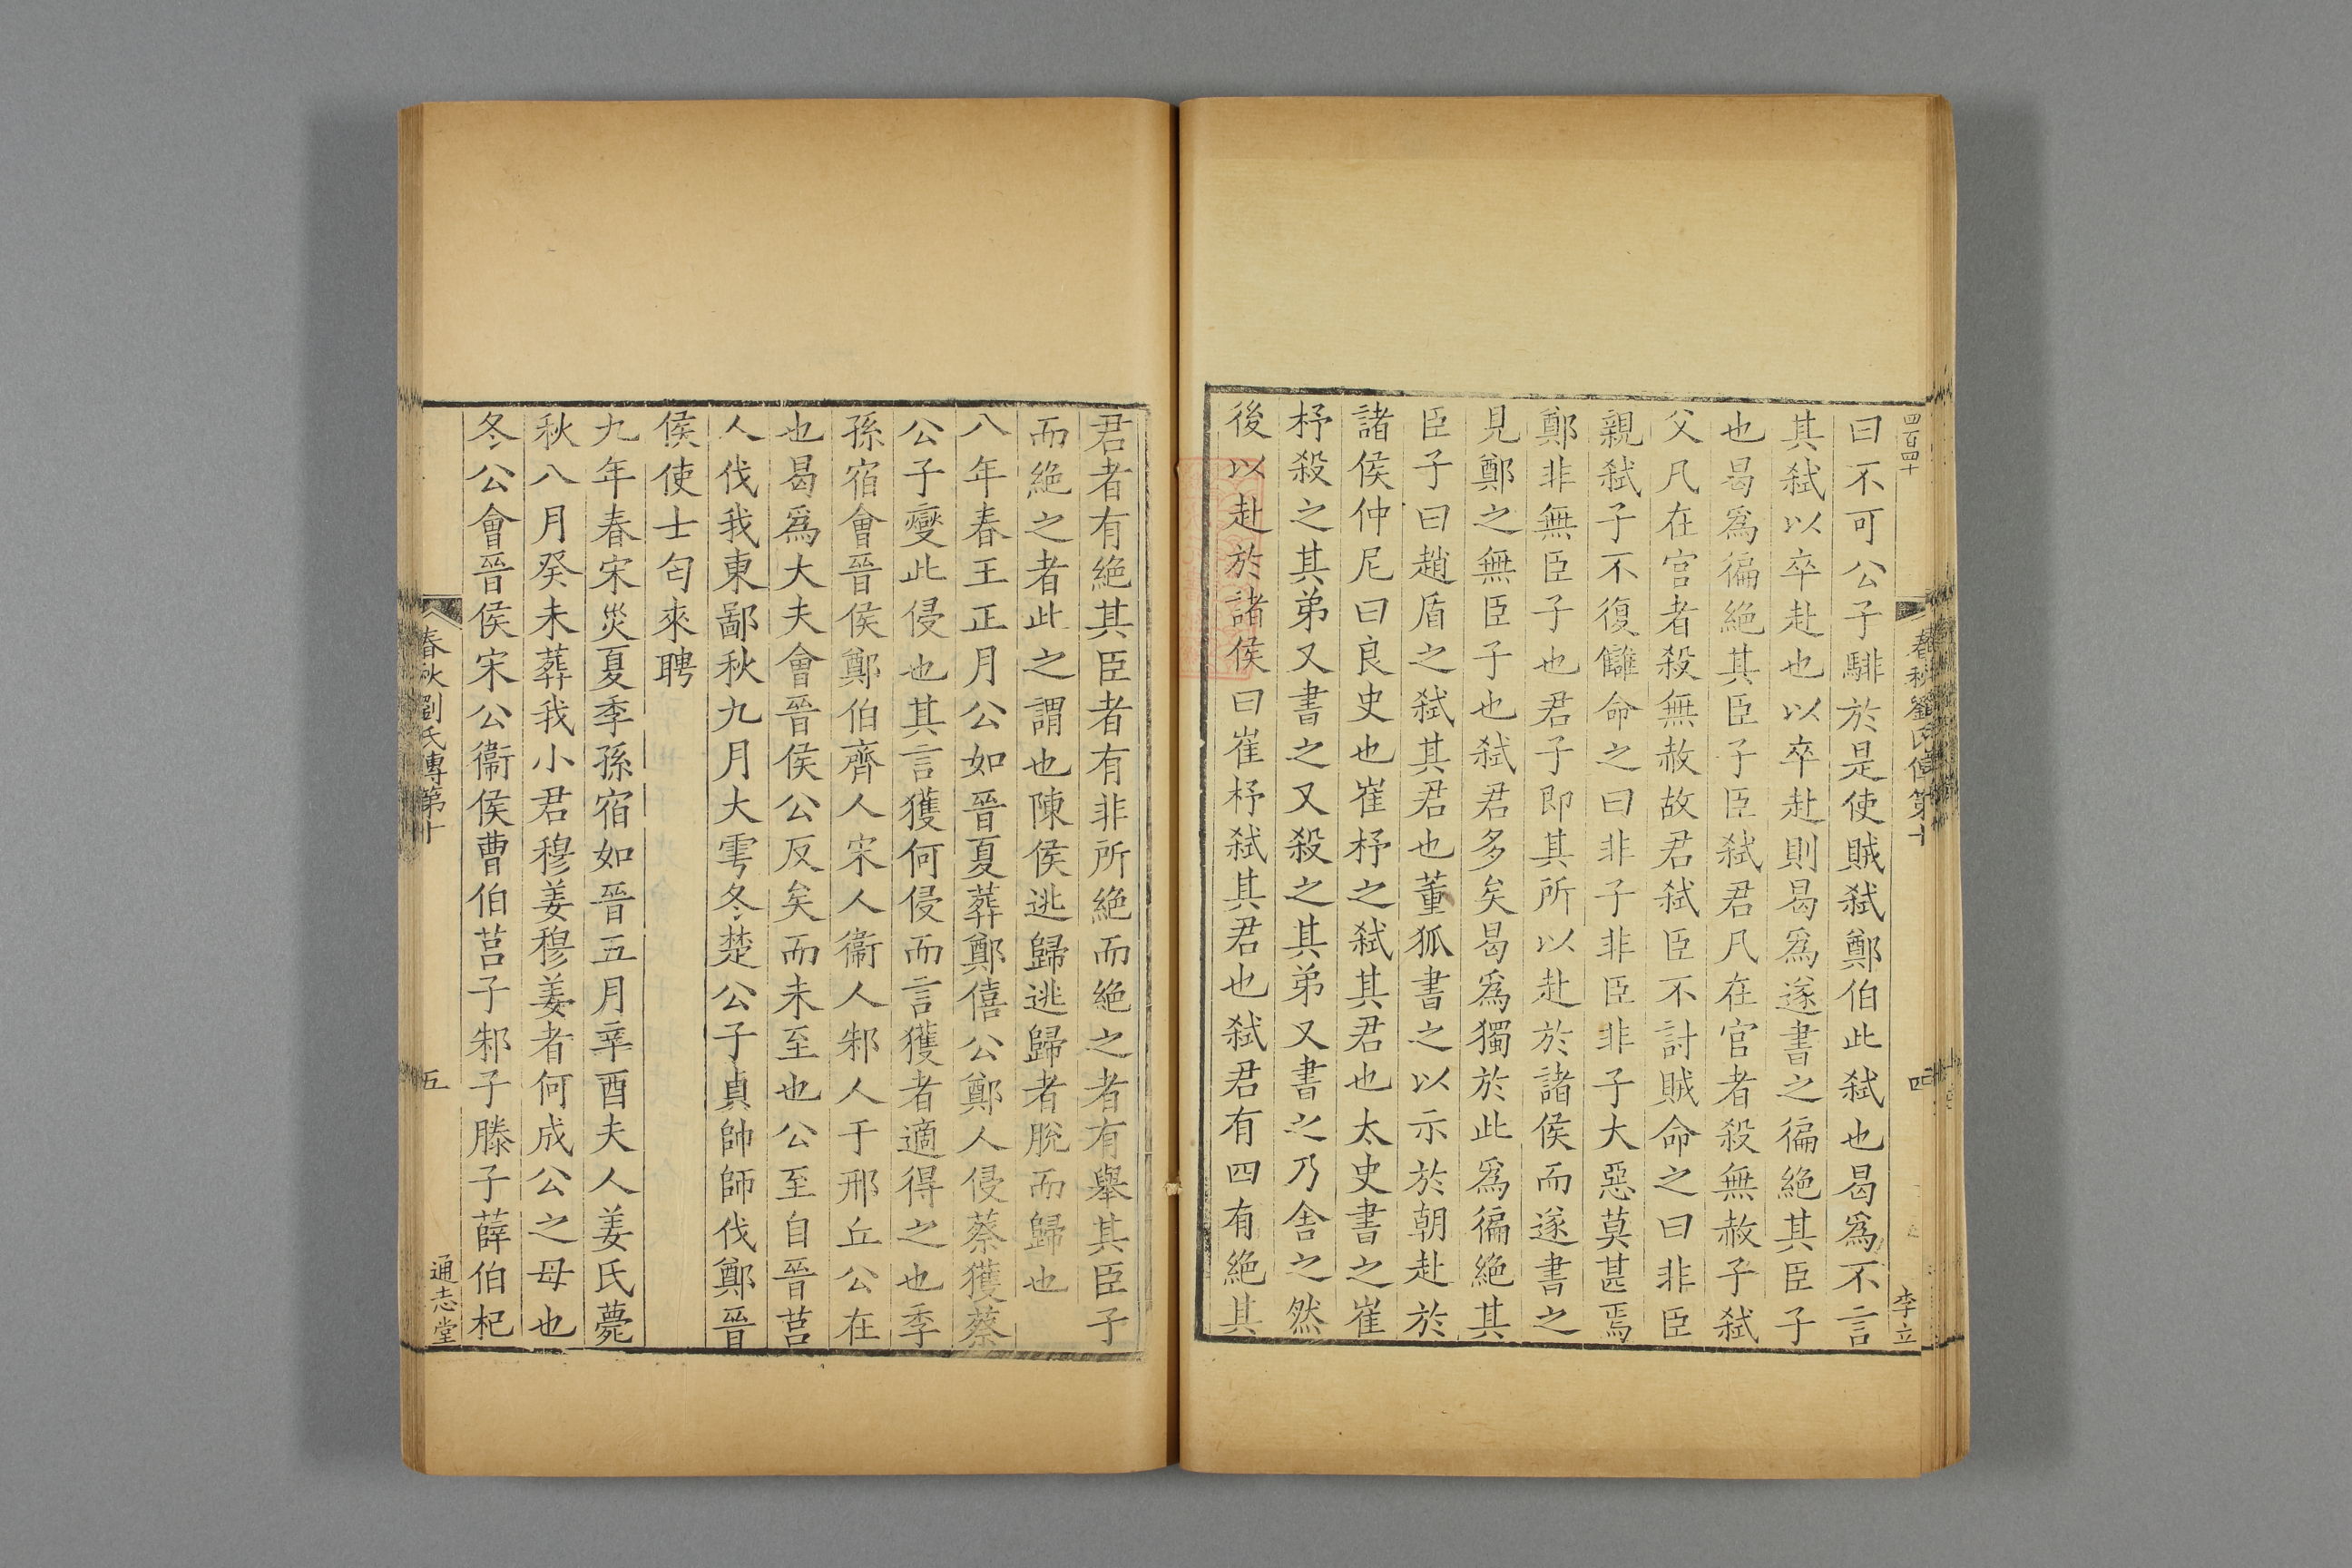 四百四十
春秋劉氏傳第十
四
李立
曰不可公子騑於是使賊弑鄭伯此弑也曷爲不言
其弑以卒赴也以卒赴則曷爲遂書之徧絶其臣子
也曷爲徧絶其臣子臣弑君凡在官者殺無赦子弑
父凡在宫者殺無赦故君弑臣不討賊命之曰非臣
親弑子不復讎命之曰非子非臣非子大惡莫甚焉
鄭非無臣子也君子即其所以赴於諸侯而遂書之
見鄭之無臣子也弑君多矣曷爲獨於此爲徧絶其
臣子曰趙盾之弑其君也董狐書之以示於朝赴於
諸侯仲尼曰良史也崔杼之弑其君也太史書之崔
杼殺之其弟又書之又殺之其弟又書之乃舍之然
後以赴於諸侯曰崔杼弑其君也弑君有四有絶其
君者有絶其臣者有非所絶而絶之者有舉其臣子
而絶之者此之謂也陳侯逃歸逃歸者脫而歸也
八年春王正月公如晉夏葬鄭僖公鄭人侵蔡獲蔡
公子燮此侵也其言獲何侵而言獲者適得之也季
孫宿會晉侯鄭伯齊人宋人衞人邾人于邢丘公在
也曷爲大夫會晉侯公反矣而未至也公至自晉莒
人伐我東鄙秋九月大雩冬楚公子貞帥師伐鄭晉
侯使士匄來聘
九年春宋災夏季孫宿如晉五月辛酉夫人姜氏薨
秋八月癸未葬我小君穆姜穆姜者何成公之母也
冬公會晉侯宋公衞侯曹伯莒子邾子滕子薛伯杞
春秋劉氏傳第十
五
通志堂